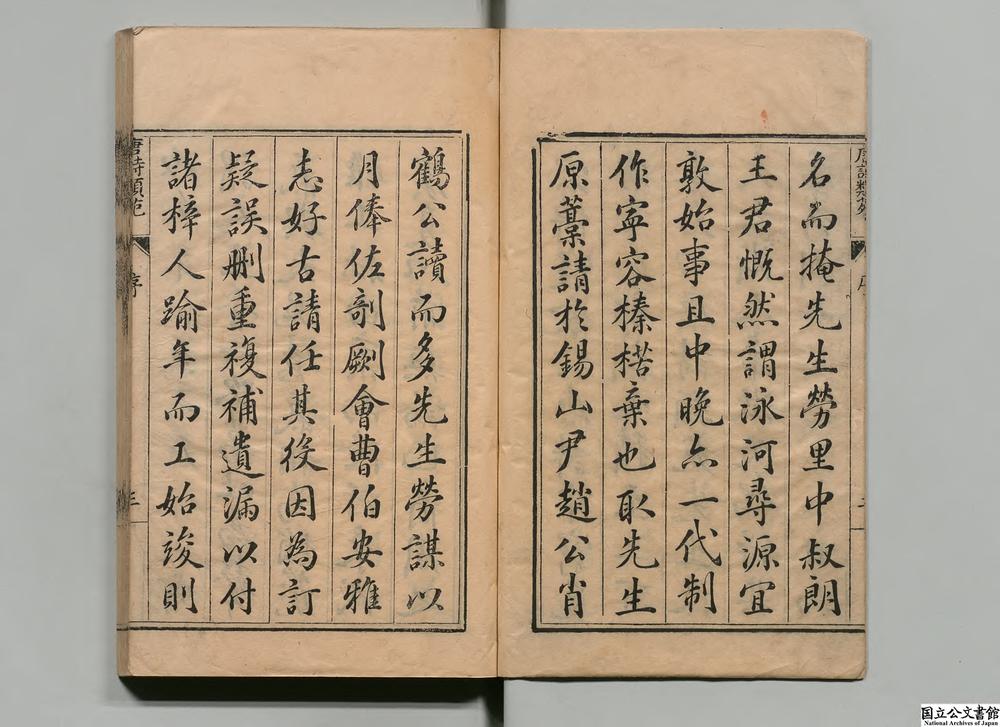 名而掩先生勞里中叔朗
王君慨然謂泳河尋源宜
敦始事且中晚亦一代制
作寧容榛楛棄也取先生
原藁請於錫山尹趙公肖
鶴公讀而多先生勞謀以
月俸佐剞劂會曹伯安雅
志好古請任其役因為訂
疑誤刪重複補遺漏以付
諸梓人踰年而工始竣則
唐詩類苑
序
三
国立公文書館
National Archives of Japan